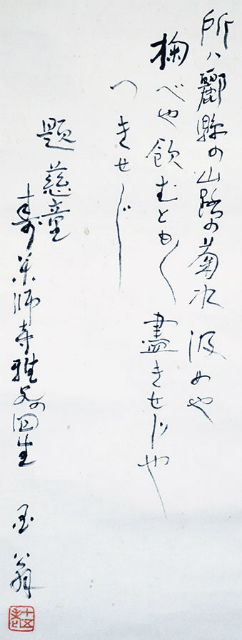 所ハ酈縣の山路の菊水汲めや
掬べや飲むとも〱盡きせじや
つきせじ
題慈童
壽 師寺雅兄の回生 翁